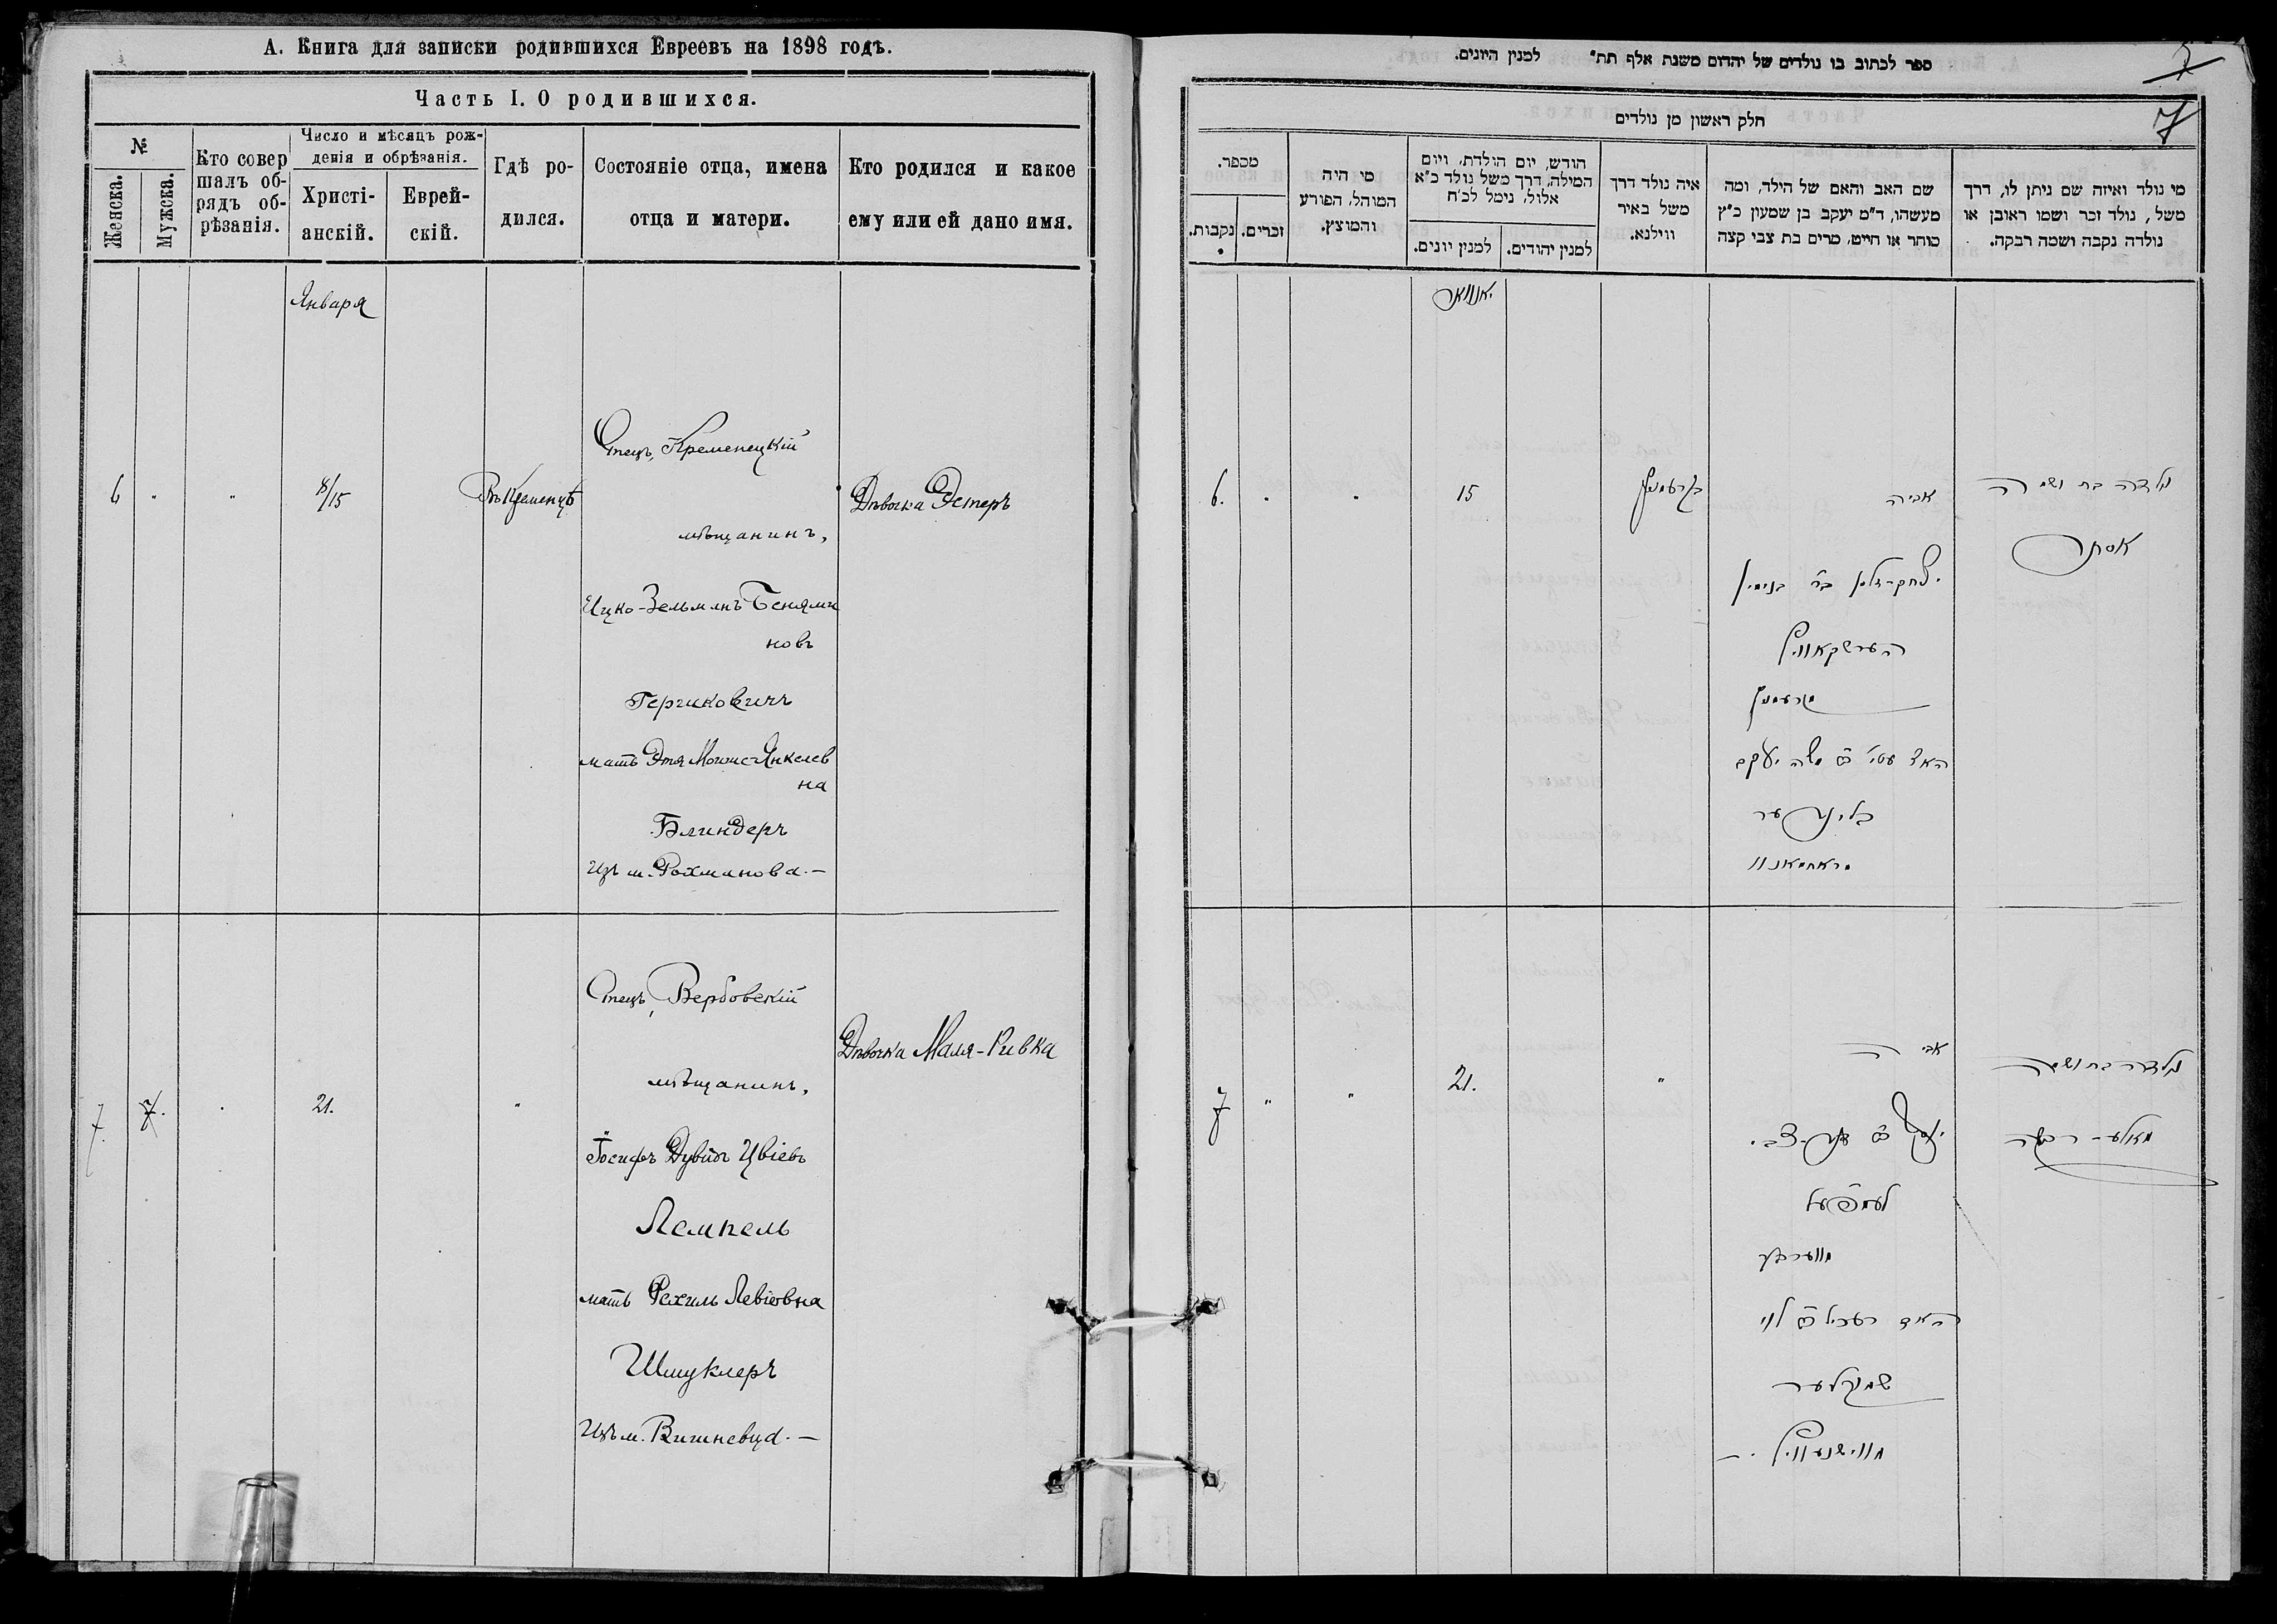 А. Книга для записки родившихся Евреевъ на 1898 годъ.
Часть I. О родившихся.
№
Женска.
Мужска.
Кто совер
шалъ об-
рядъ об-
рѣзанія.
Число и мѣсяцъ рож-
денія и обрѣзанія.
Христі-
анскій.
Еврей-
скій.
Гдѣ ро-
дился.
Состояніе отца, имена
отца и матери.
Кто родился и какое
ему или ей дано имя.
Января
6
"
"
8/15
Въ Кременцѣ
Отецъ, Кременецкій
мѣщанинъ,
Ицко-Зельманъ Бенями
новъ
Гершковичъ
мать Этя Мошке-Янкелев
на
Блиндеръ
Изъ м. Рахманова.—
Дѣвочка Эстеръ
7.
7.
"
21.
"
Отецъ, Вербовскій
мѣщанинъ,
Іосифъ Дувидъ Цвіевъ
Лемпель
мать Рехиль Левіовна
Шмуклеръ
Изъ м. Вишневца.—
Дѣвочка Маля-Ривка
ספר לכתוב בו נולדים של יהדום משנת אלף תת" למנין היונים.
7
7
חלק ראשון מן נולדים
מספר.
נקבות.
זכרים.
מי היה
המוהל, הפורע
והמוצץ.
חודש, יום הולדת, ויום
המילה, דרך משל נולד כ"א
אלול, נימל לכ"ח
למנין יונים.
למנין יהודים.
איה נולד דרך
משל באיר
ווילנא.
שם האב והאם של הילד, ומה
מעשהו, ד"מ יעקב בן שמעון כ"ץ
סוחר או חייט, מרים בת צבי קצה
מי נולד ואיזה שם ניתן לו, דרך
משל, נולד זכר ושמו ראובן או
נולדה נקבה ושמה רבקה.
יאנוואר
6.
"
"
15
קרעמניץ
אביה
יצחק-זלמן ב"ר בנימין
הערשקאוויץ
קרעמניץ
האם עטי' בת משה יעקב
בלינדער
מראחמאנוו
נולדה בת ושמה
אסתר
7
"
"
21.
"
אביה
יוסף בן דוד-צבי
לעמפעל
ווערבע
האם רעכיל בת לוי
שמוקלער
מווישנעוויץ.—
נולדה בת ושמה
מאלע-רבקה